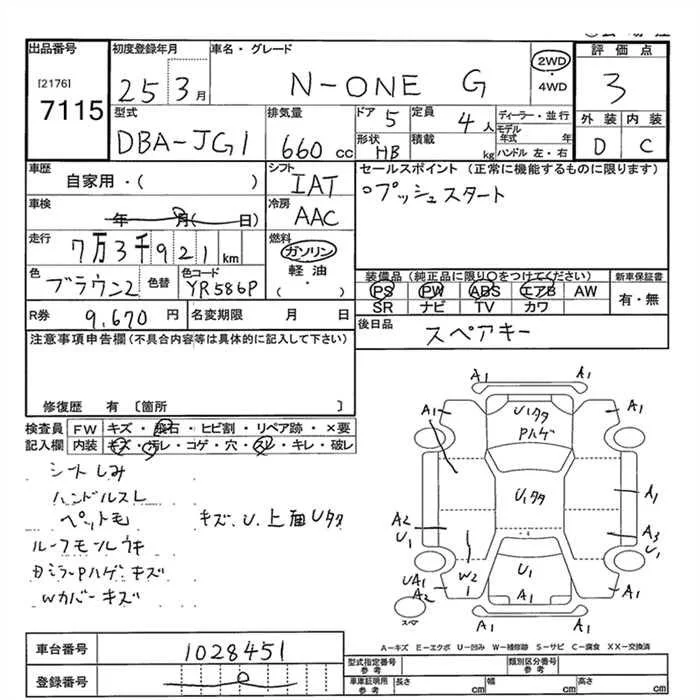 出品番号
[2176]
7115
初度登録年月
25 3月
車名・グレード
N-ONE G
2WD
・
4WD
評価点
3
外装 内装
D C
型式
DBA-JG1
排気量
660 cc
ドア 5
定員 4人
形状 HB
積載 kg
ディーラー・並行
モデル年式 年
ハンドル 左・右
車歴
自家用・( )
シフト
IAT
セールスポイント (正常に機能するものに限ります)
○プッシュスタート
車検
年 月( 日)
冷房
AAC
走行
7万3千921km
燃料
ガソリン
軽油
・( )
色
ブラウン2
色替
色コード
YR586P
装備品(純正品に限り○をつけてください)
PS PW ABS エアB AW
SR ナビ TV カワ
新車保証書
有・無
R券 9,670 円
名変期限 月 日
後日品
スペアキー
注意事項申告欄(不具合内容等は具体的に記入して下さい)
修復歴 有 〔箇所 〕
検査員 FW キズ・飛石・ヒビ割・リペア跡・×要
記入欄 内装 キズ・汚レ・コゲ・穴・スレ・キレ・破レ
シートしみ
ハンドルスレ
ペット毛
キズ、U、上面Uタタ
ルーフモールウキ
ミラーPハゲキズ
Wカバーキズ
A1 A1
A1 A1
Uタタ
Pハゲ
Uタタ
A1
A2
U1
A3
U1
W2
1
U1
A1
UA1
A2
A1
スペア
A1 A1
A-キズ E-エクボ U-凹み W-補修跡 S-サビ C-腐食 XX-交換済
車台番号 1028451
登録番号
型式指定番号
参考
類別区分番号
参考
車庫証明用
参考
長さ cm 幅 cm 高さ cm